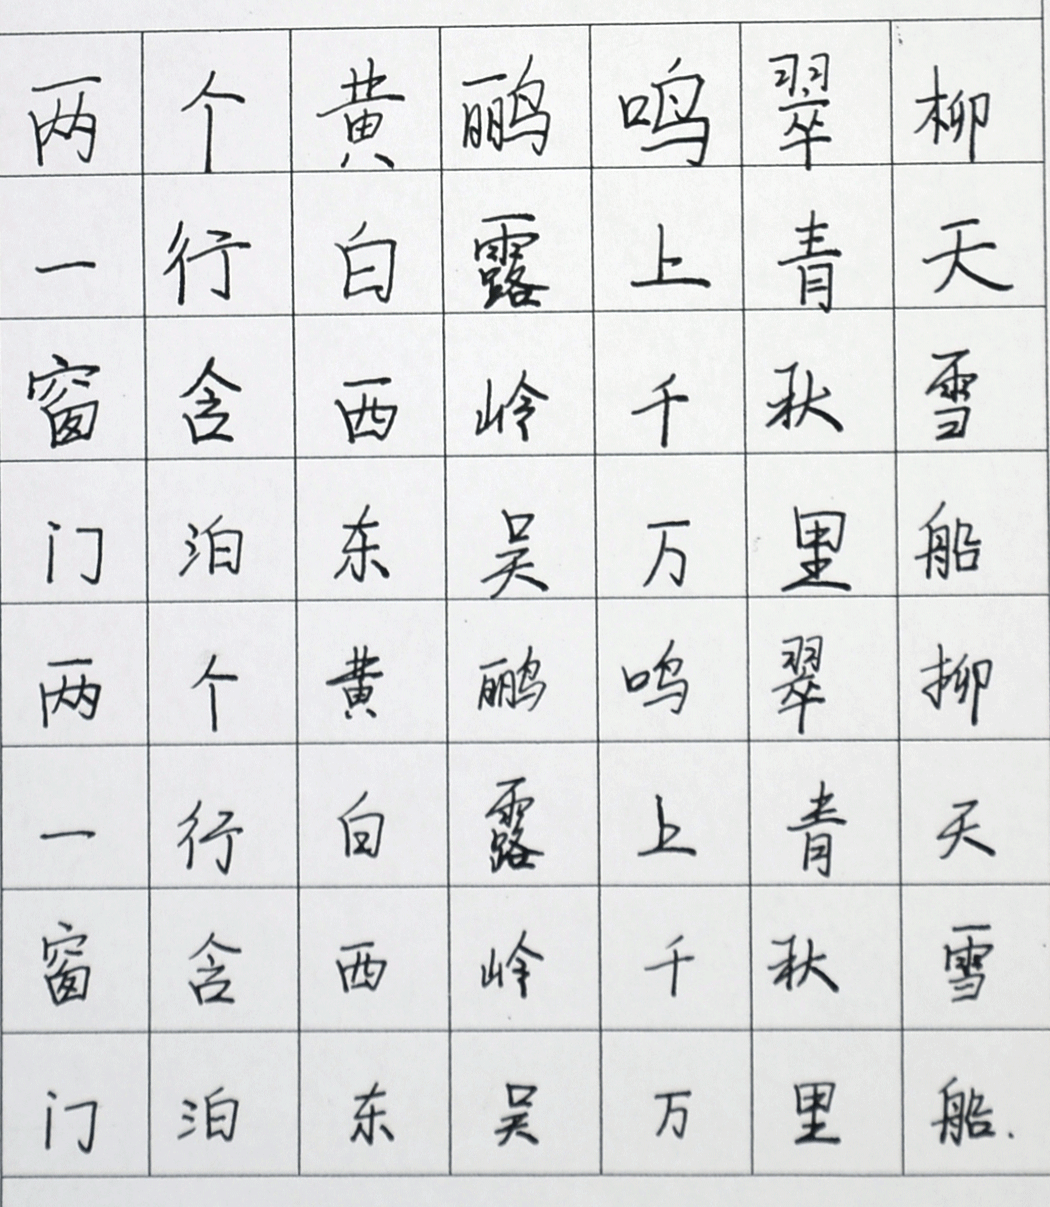 两个黄鹂鸣翠柳
一行白露上青天
窗含西岭千秋雪
门泊东吴万里船
两个黄鹂鸣翠柳
一行白露上青天
窗含西岭千秋雪
门泊东吴万里船.